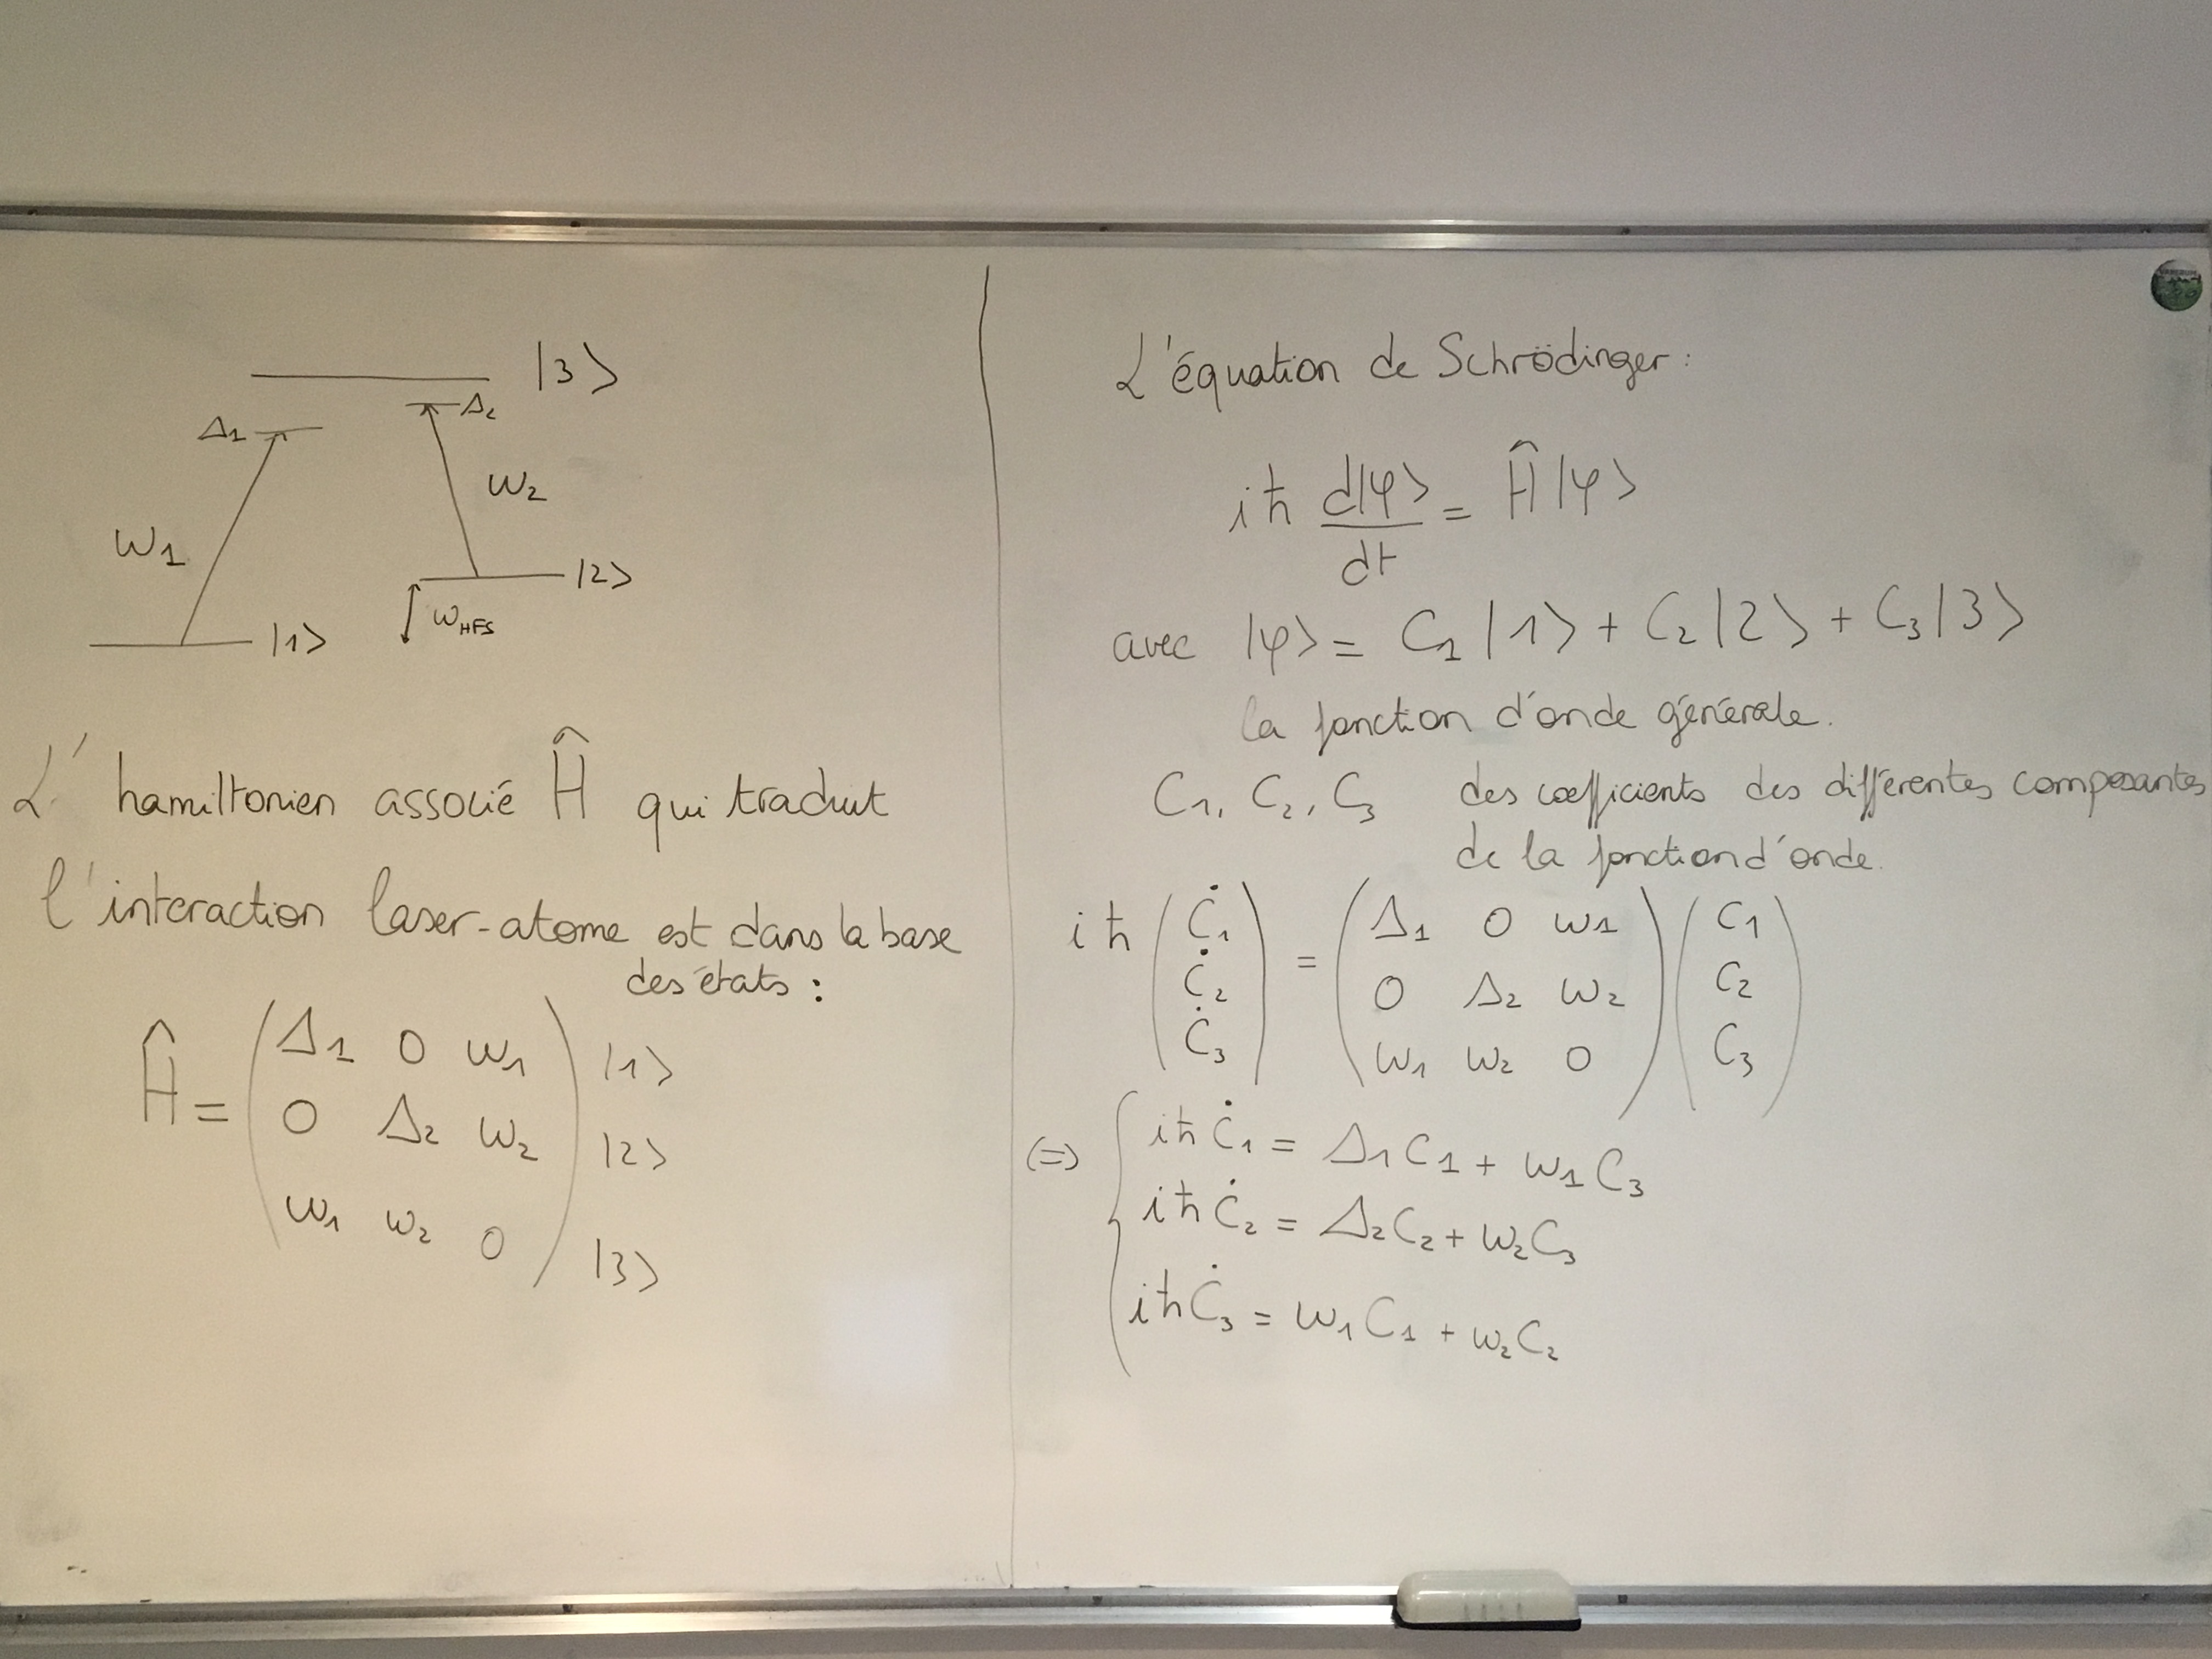 |3>
Δ1
Δ2
ω1
ω2
|2>
ωHFS
|1>
L'hamiltonien associé Ĥ qui traduit
l'interaction laser-atome est dans la base
des états :
Ĥ = (Δ1 0 ω1) |1>
(0 Δ2 ω2) |2>
(ω1 ω2 0) |3>
L'équation de Schrödinger :
iħ d|φ>/dt = Ĥ|φ>
avec |φ> = C1|1> + C2|2> + C3|3>
la fonction d'onde générale.
C1, C2, C3 des coefficients des différentes composantes
de la fonction d'onde.
iħ (Ċ1) = (Δ1 0 ω1) (C1)
(Ċ2) (0 Δ2 ω2) (C2)
(Ċ3) (ω1 ω2 0) (C3)
(=) { iħĊ1 = Δ1C1 + ω1C3
iħĊ2 = Δ2C2 + ω2C3
iħĊ3 = ω1C1 + ω2C2